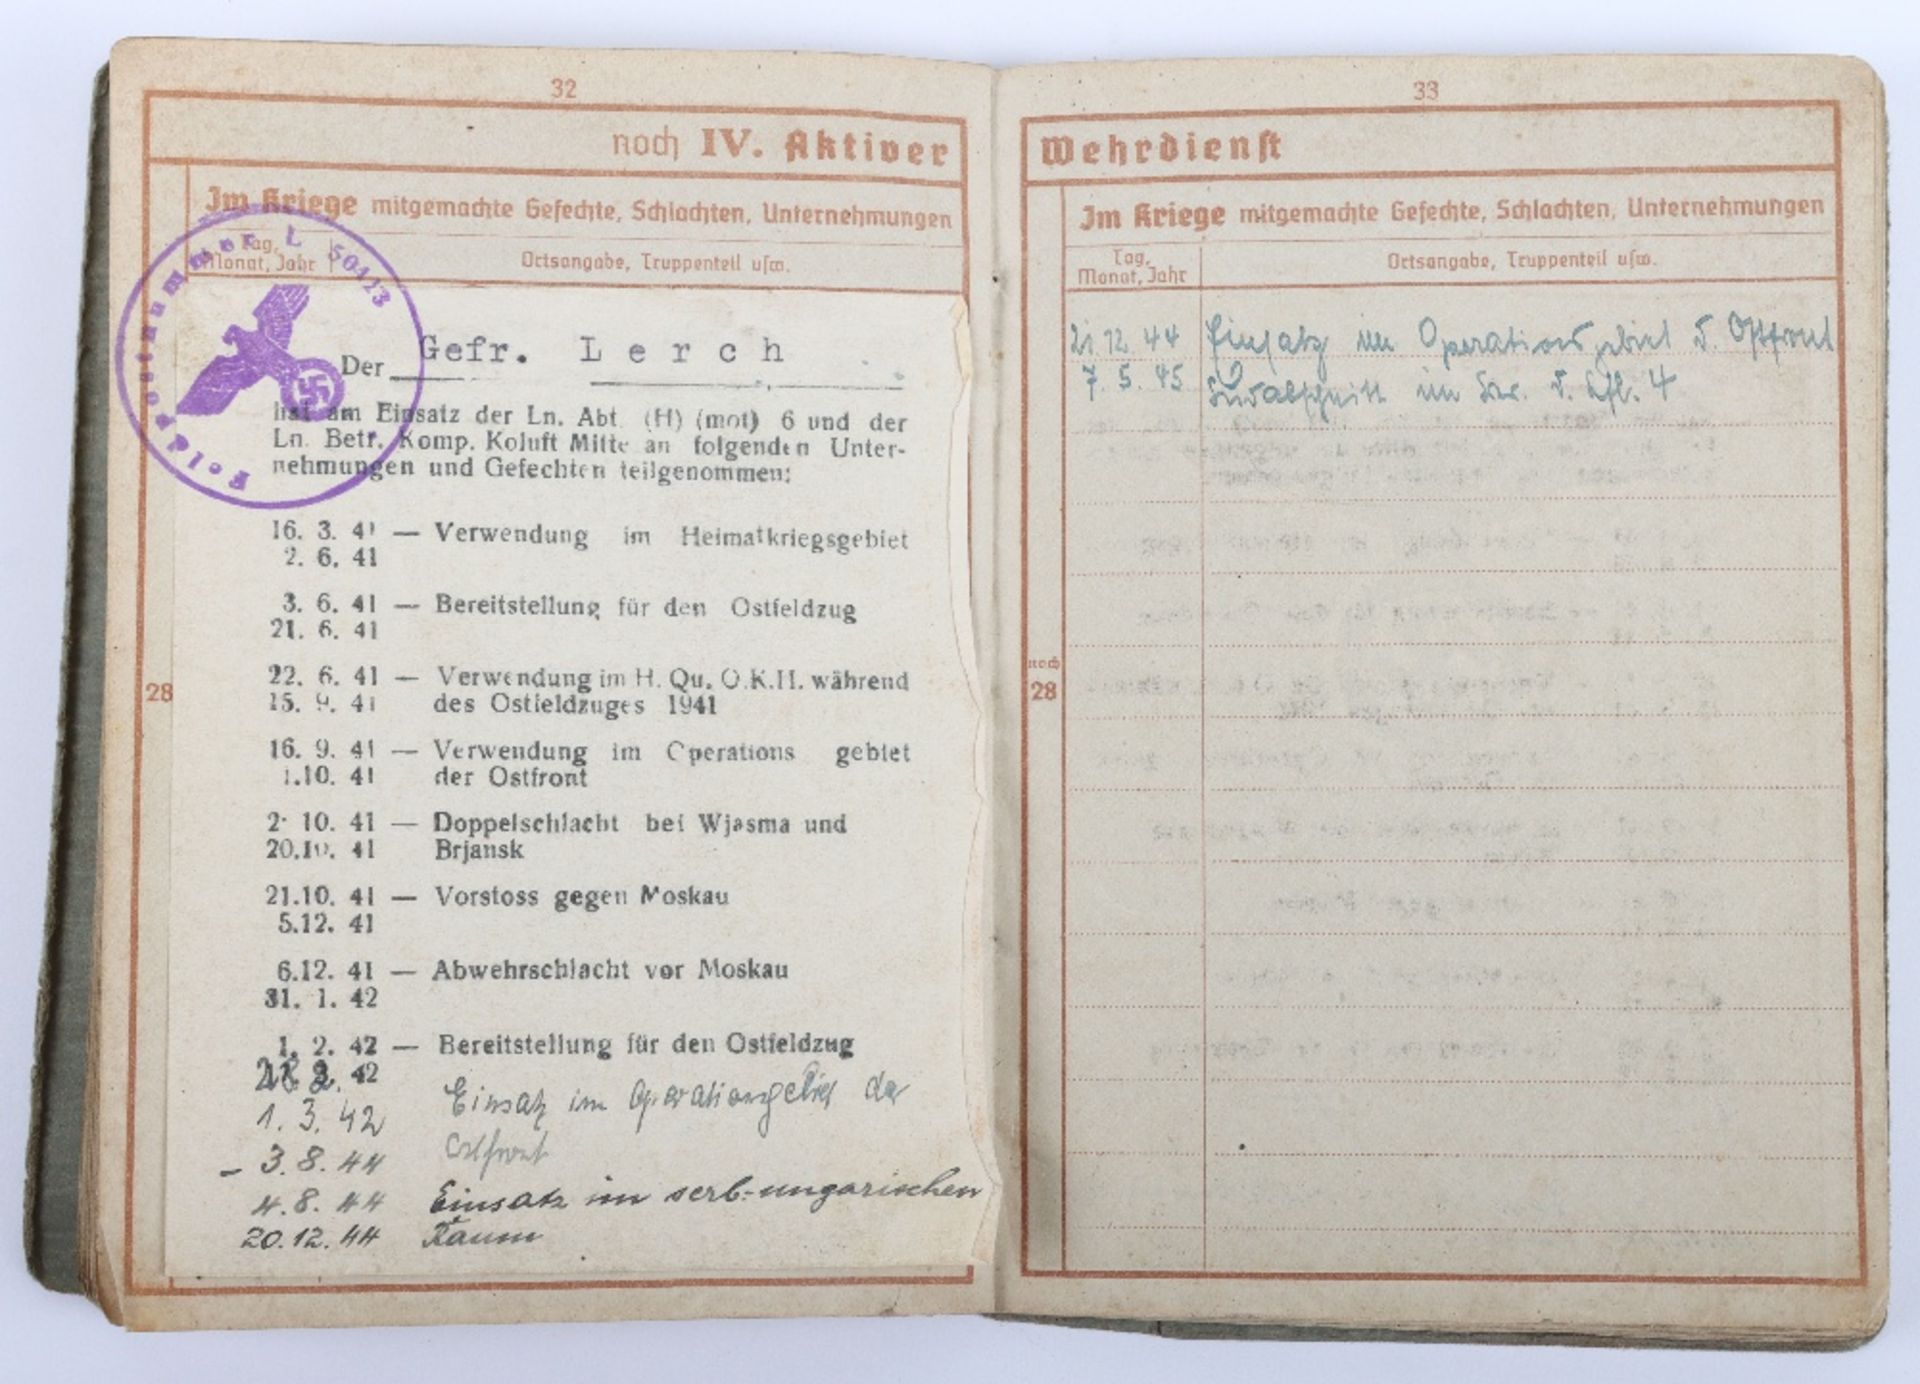 32
noch IV. Aktiver
Im Kriege mitgemachte Gefechte, Schlachten, Unternehmungen
Tag,
Monat, Jahr
Ortsangabe, Truppenteil usw.
Feldpostnummer L 50413
Der Gefr. Lerch
hat am Einsatz der Ln. Abt. (H) (mot) 6 und der
Ln. Betr. Komp. Koluft Mitte an folgenden Unter-
nehmungen und Gefechten teilgenommen:
16. 3. 41 — Verwendung im Heimatkriegsgebiet
2. 6. 41
3. 6. 41 — Bereitstellung für den Ostfeldzug
21. 6. 41
22. 6. 41 — Verwendung im H. Qu. O.K.H. während
15. 9. 41 des Ostfeldzuges 1941
28
16. 9. 41 — Verwendung im Operations gebiet
1.10. 41 der Ostfront
2. 10. 41 — Doppelschlacht bei Wjasma und
20.10. 41 Brjansk
21.10. 41 — Vorstoss gegen Moskau
5.12. 41
6.12. 41 — Abwehrschlacht vor Moskau
31. 1. 42
1. 2. 42 — Bereitstellung für den Ostfeldzug
28. 2. 42
1. 3. 42 Einsatz im Operationsgebiet der
- 3. 8. 44 Ostfront
4. 8. 44 Einsatz im serb.-ungarischen
20.12. 44 Raum
33
Wehrdienst
Im Kriege mitgemachte Gefechte, Schlachten, Unternehmungen
Tag,
Monat, Jahr
Ortsangabe, Truppenteil usw.
21. 12. 44 Einsatz im Operationsgebiet d. Ostfront
7. 5. 45 Südabschnitt im d. 4
noch
28